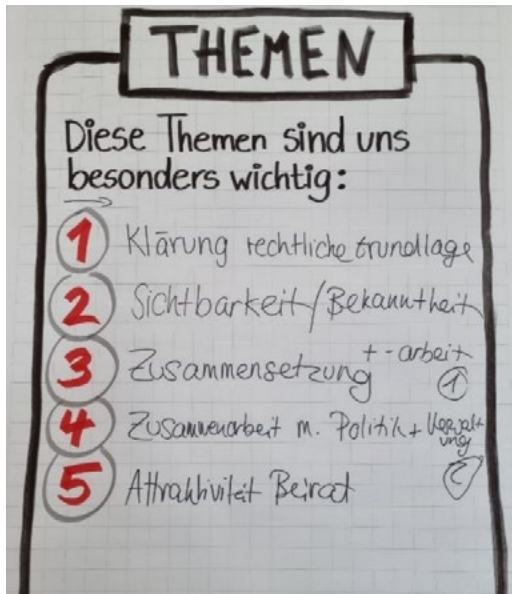 THEMEN
Diese Themen sind uns
besonders wichtig:
1 Klärung rechtliche Grundlage
2 Sichtbarkeit/Bekanntheit
3 Zusammensetzung + -arbeit
1
4 Zusammenarbeit m. Politik + Verwalt-
ung
5 Attraktivität Beirat